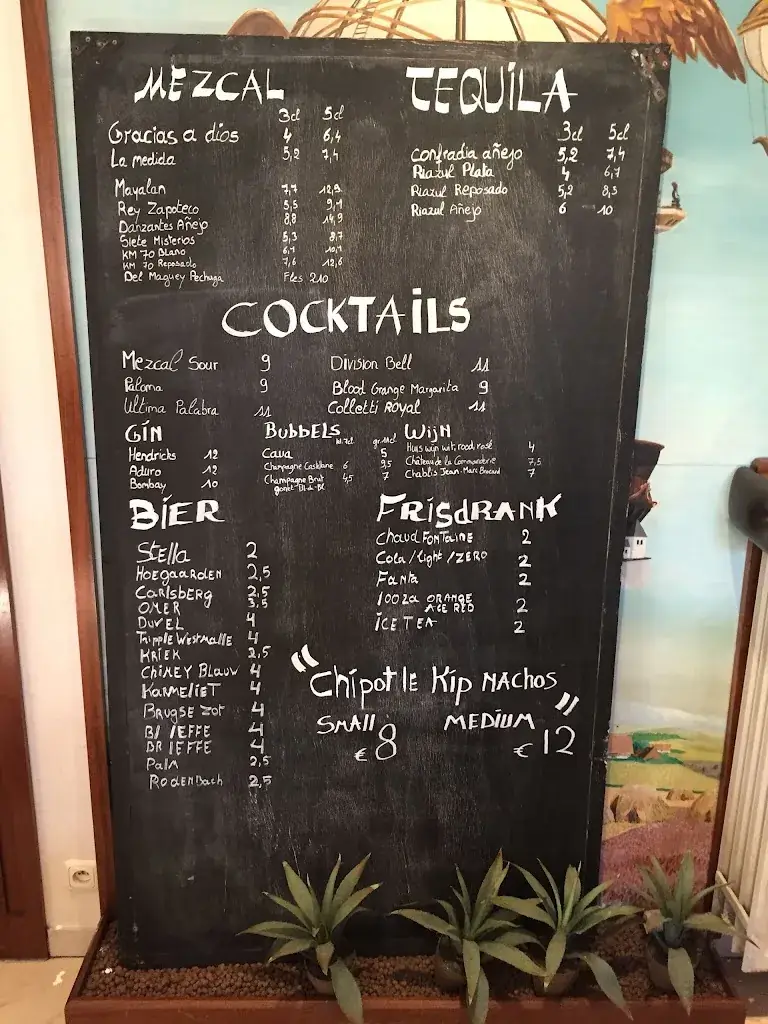 MEZCAL
3cl 5cl
Gracias a dios 4 6,4
La medida 5,2 7,4
Mayalan 7,7 12,9
Rey Zapoteco 5,5 9,1
Danzantes Añejo 8,8 14,9
Siete Misterios 5,3 8,7
KM 70 Blano 6,1 10,1
KM 70 Reposado 7,6 12,6
Del Maguey Pechuga Fles 210
TEQUiLA
3cl 5cl
Confradia añejo 5,2 7,4
Riazul Plata 4 6,7
Riazul Reposado 5,2 8,5
Riazul Añejo 6 10
COCKTAiLS
Mezcal Sour 9
Paloma 9
Ultima Palabra 11
Division Bell 11
Blood Orange Margarita 9
Colletti Royal 11
GiN
Hendricks 12
Aduro 12
Bombay 10
BubbELS
Cava 5
Champagne Castelane 6 9,5
Champagne Brut 4,5 7
WijN
Huis wijn wit, rood, rosé 4
Château de la Commanderie 7,5
Chablis Jean-Marc Brocard 7
BiER
Stella 2
HOEGAARDEN 2,5
CARLSBERG 2,5
OMER 3,5
DUVEL 4
TRipple WESTMalle 4
KRiEK 2,5
CHiMEY BLauw 4
KARMELiET 4
BRUGSE ZOT 4
Bl lEFFE 4
BR lEFFE 4
Palm 2,5
RODENBach 2,5
FRiSdRANK
Chaud FONTaiNE 2
Cola/light/ZERO 2
Fanta 2
looza ORANGE
ACE RED 2
iCE TEA 2
"Chipotle Kip NACHOS"
SMAll MEDiUM
€ 8 € 12